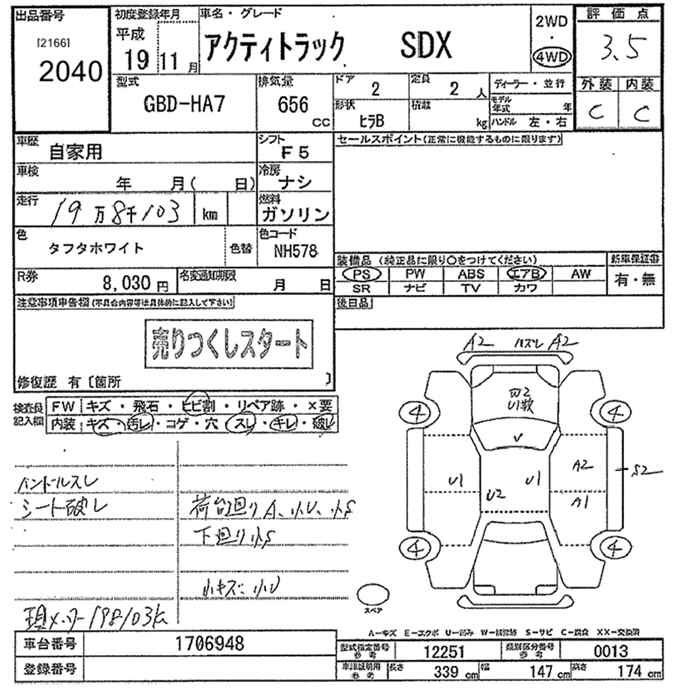 出品番号
[2166]
2040
初度登録年月
平成
19 11 月
車名・グレード
アクティトラック SDX
2WD
・
4WD
評価点
3.5
外装 内装
C C
型式
GBD-HA7
排気量
656
CC
ドア
2
定員
2 人
形状
ヒラB
積載
kg
ディーラー・並行
モデル年式 年
ハンドル 左・右
車歴
自家用
シフト
F5
セールスポイント(正常に機能するものに限ります)
車検
年 月( 日)
冷房
ナシ
走行
19万8千103 km
燃料
ガソリン
色
タフタホワイト
色替
色コード
NH578
装備品 (純正品に限り○をつけてください)
PS PW ABS エアB AW
SR ナビ TV カワ
新車保証書
有・無
R券
8,030 円
名変通知期限
月 日
後日品
注意事項申告欄(不具合内容等は具体的に記入して下さい)
売りつくしスタート
修復歴 有〔箇所 〕
検査員記入欄
FW キズ・飛石・ヒビ割・リペア跡・×要
内装 キズ・汚レ・コゲ・穴 スレ・キレ・破レ
ハンドルスレ
シート破レ
荷台廻りA、小U、小S
下廻り小S
小キズ、小U
現メーター198103k
A2 ハズレ A2
4 4
凹2
U1数
V
U1 U1 A2
U2 A1
S2
4 4
スペア
A-キズ E-エクボ U-凹み W-補修跡 S-サビ C-腐食 XX-交換済
車台番号 1706948
登録番号
型式指定番号 参考 12251
類別区分番号 参考 0013
車検証明用 参考 長さ 339 cm 幅 147 cm 高さ 174 cm